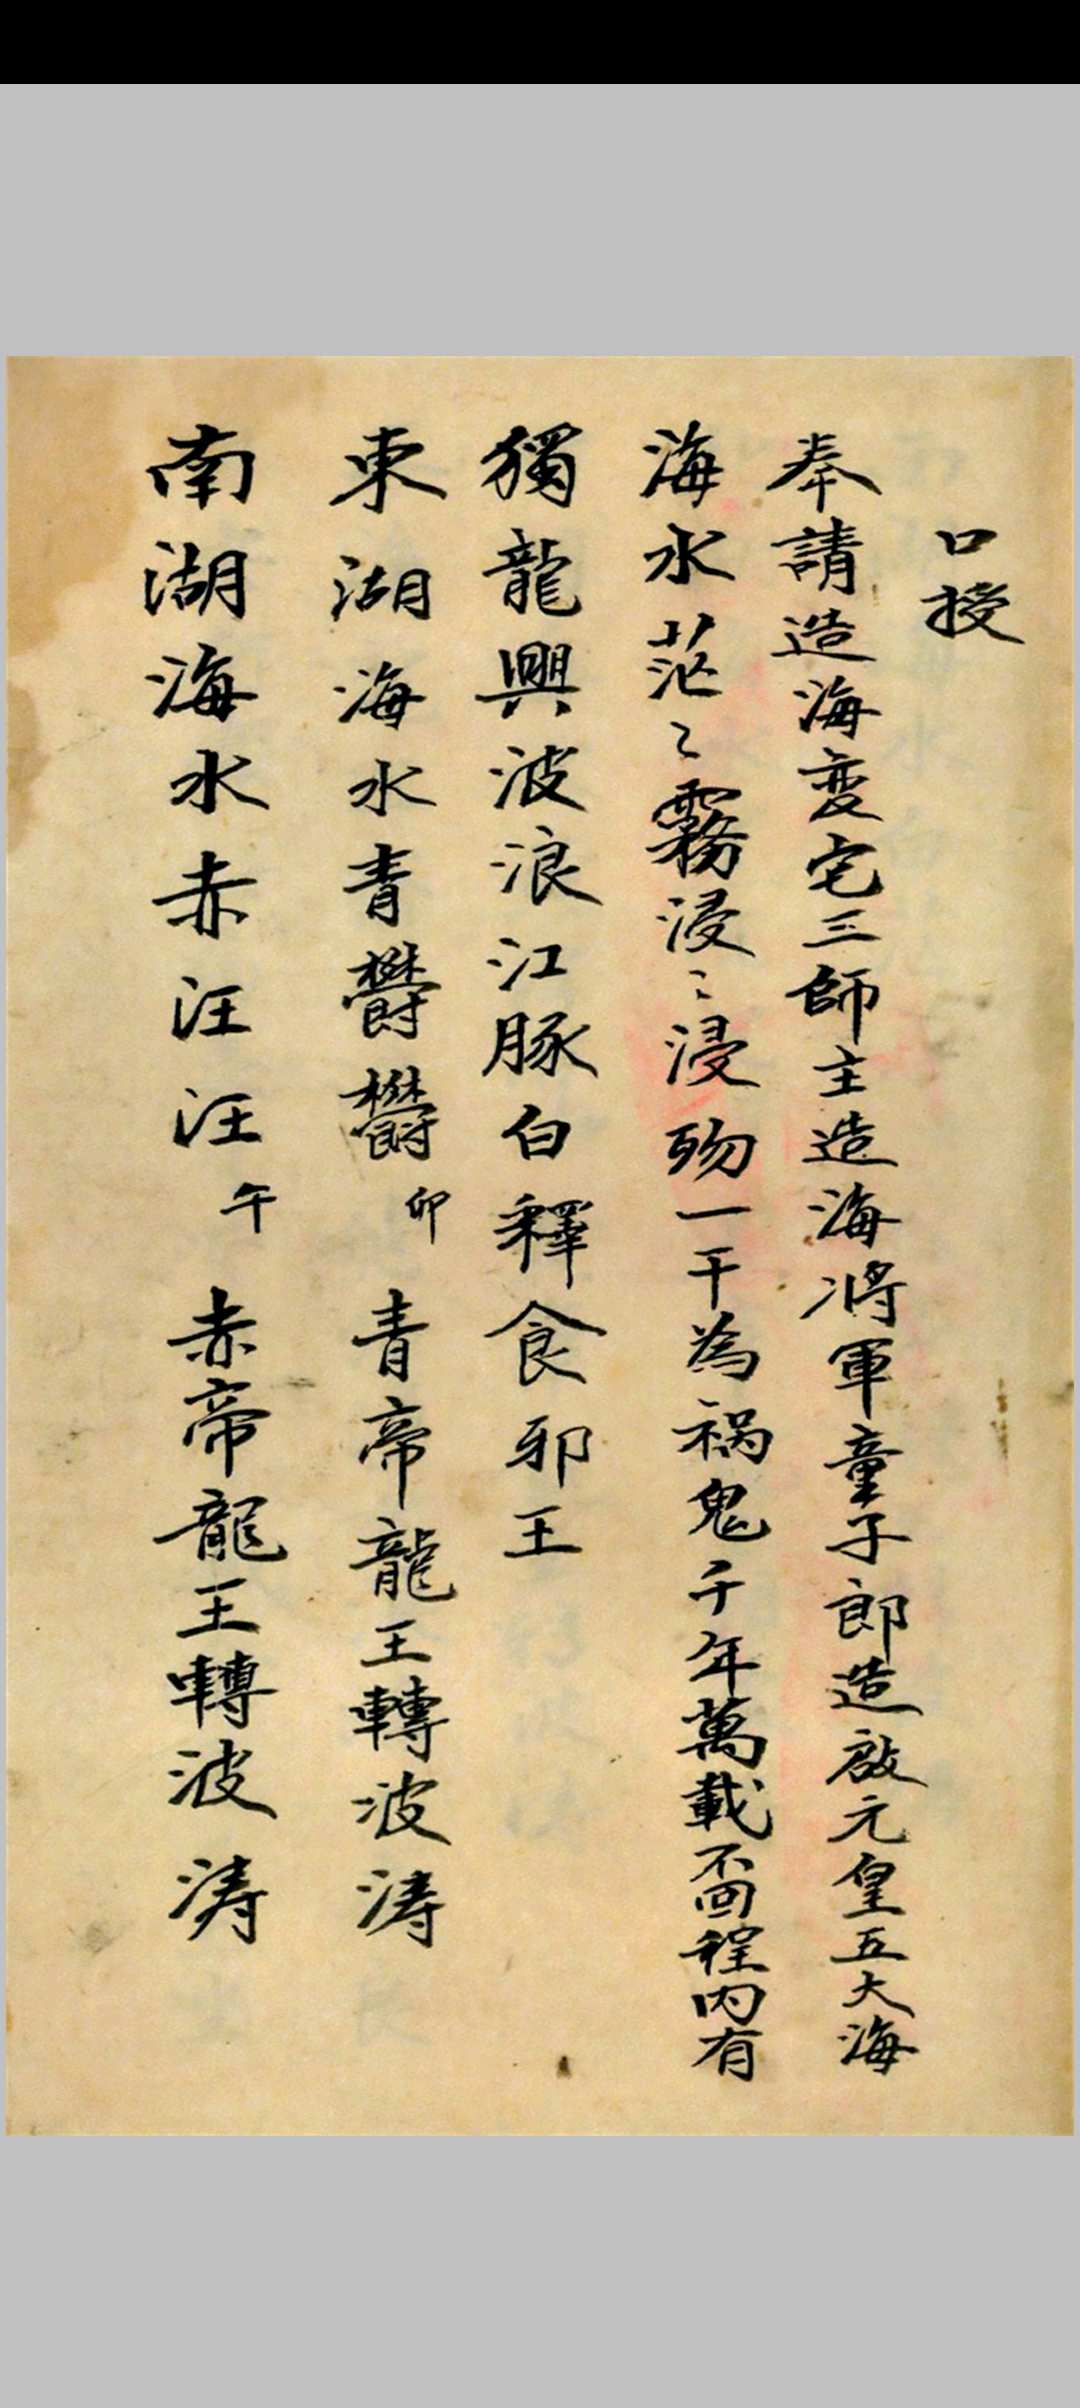 口授
奉請造海变宅三師主造海將軍童子郎造啟元皇五大海
海水茫〻霧浸〻浸歾一干為禍鬼千年萬載不回程内有
獨龍興波浪江豚白釋食邪王
東湖海水青欝欝卯 青帝龍王轉波涛
南湖海水赤汪汪午 赤帝龍王轉波涛